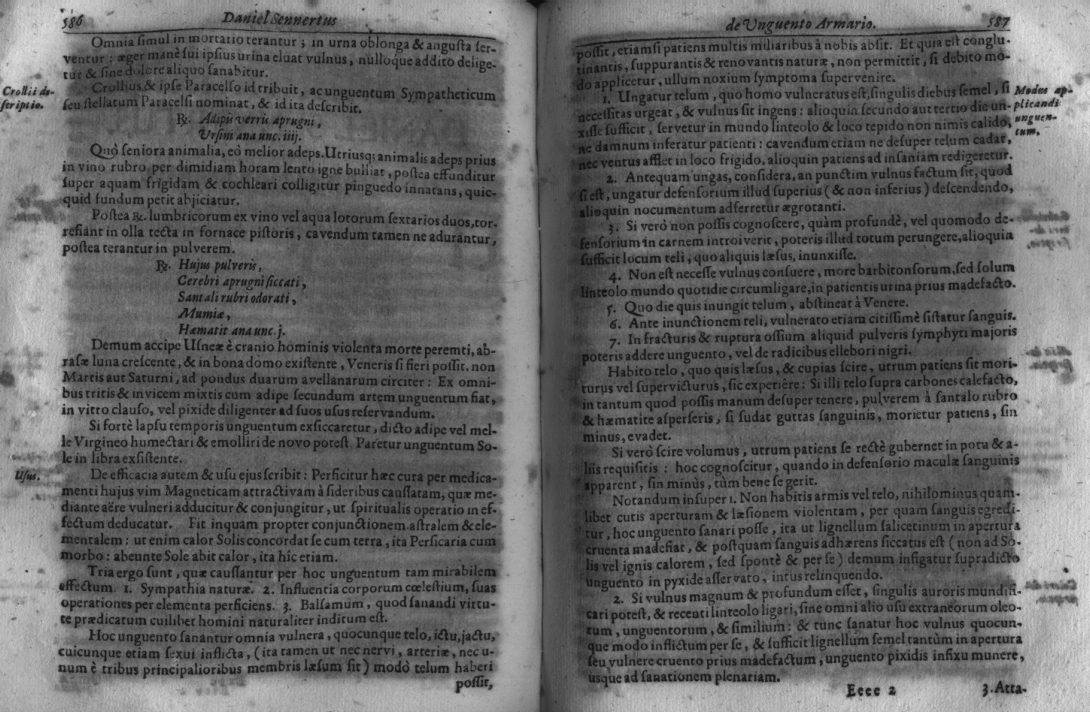 586
Daniel Sennertus
Omnia simul in mortario terantur ; in urna oblonga & angusta ser-
ventur : æger manè sui ipsius urina eluat vulnus , nulloque addito delige-
tur & sine dolore aliquo sanabitur.
Crollii de-
scriptio.
Crollius & ipse Paracelso id tribuit, ac unguentum Sympatheticum
seu stellatum Paracelsi nominat, & id ita describit.
℞. Adipis verris aprugni ,
Ursini ana unc. iiij.
Quò seniora animalia, eò melior adeps. Utriusq; animalis adeps prius
in vino rubro per dimidiam horam lento igne bulliat , postea effunditur
super aquam frigidam & cochleari colligitur pinguedo innatans, quic-
quid fundum petit abjiciatur.
Postea ℞. lumbricorum ex vino vel aqua lotorum sextarios duos, tor-
refiant in olla tecta in fornace pistoris , cavendum tamen ne adurantur ,
postea terantur in pulverem.
℞. Hujus pulveris,
Cerebri aprugni siccati ,
Santali rubri odorati ,
Mumiæ ,
Hæmatit ana unc. j.
Demum accipe Usneæ è cranio hominis violenta morte peremti, ab-
rasæ luna crescente , & in bona domo existente , Veneris si fieri possit, non
Martis aut Saturni, ad pondus duarum avellanarum circiter : Ex omni-
bus tritis & invicem mixtis cum adipe secundum artem unguentum fiat,
in vitro clauso, vel pixide diligenter ad suos usus reservandum.
Si fortè lapsu temporis unguentum exsiccaretur , dicto adipe vel mel-
le Virgineo humectari & emolliri de novo potest Paretur unguentum So-
le in libra existente.
Usus.
De efficacia autem & usu ejus scribit : Perficitur hæc cura per medica-
menti hujus vim Magneticam attractivam à sideribus caussatam, quæ me-
diante aëre vulneri adducitur & conjungitur , ut spiritualis operatio in ef-
fectum deducatur. Fit inquam propter conjunctionem astralem & ele-
mentalem : ut enim calor Solis concordat se cum terra , ita Persicaria cum
morbo : abeunte Sole abit calor , ita hic etiam.
Tria ergo sunt , quæ caussantur per hoc unguentum tam mirabilem
effectum. 1. Sympathia naturæ. 2. Influentia corporum cœlestium, suas
operationes per elementa perficiens. 3. Balsamum , quod sanandi virtu-
te prædicatum cuilibet homini naturaliter inditum est.
Hoc unguento sanantur omnia vulnera , quocunque telo, ictu, jactu,
cuicunque etiam sexui inflicta, ( ita tamen ut nec nervi , arteriæ , nec u-
num è tribus principalioribus membris læsum sit ) modò telum haberi
possit,
de Unguento Armario.
587
possit , etiamsi patiens multis miliaribus à nobis absit. Et quia est conglu-
tinantis, suppurantis & renovantis naturæ , non permittit , si debito mo-
do applicetur , ullum noxium symptoma supervenire.
Modus ap-
plicandi
unguen-
tum.
1. Ungatur telum , quo homo vulneratus est, singulis diebus semel , si
necessitas urgeat , & vulnus sit ingens : alioquin secundo aut tertio die un-
xisse sufficit , servetur in mundo linteolo & loco tepido non nimis calido,
ne damnum inferatur patienti : cavendum etiam ne desuper telum cadat,
nec ventus afflet in loco frigido, alioquin patiens ad insaniam redigeretur.
2. Antequam ungas, considera, an punctim vulnus factum sit, quod
si est, ungatur defensorium illud superius ( & non inferius ) descendendo,
alioquin nocumentum adferretur ægrotanti.
3. Si verò non possis cognoscere, quàm profundè, vel quomodo de-
fensorium in carnem introiverit , poteris illud totum perungere, alioquin
sufficit locum teli , quo aliquis læsus, inunxisse.
4. Non est necesse vulnus consuere , more barbitonsorum, sed solum
linteolo mundo quotidie circumligare, in patientis urina prius madefacto.
5. Quo die quis inungit telum , abstineat à Venere.
6. Ante inunctionem teli, vulnerato etiam citissimè sistatur sanguis.
7. In fracturis & ruptura ossium aliquid pulveris symphyti majoris
poteris addere unguento , vel de radicibus ellebori nigri.
Habito telo , quo quis læsus , & cupias scire , utrum patiens sit mori-
turus vel supervicturus , sic experière : Si illi telo supra carbones calefacto,
in tantum quod possis manum desuper tenere , pulverem à santalo rubro
& hæmatite asperseris , si sudat guttas sanguinis, morietur patiens , sin
minus, evadet.
Si verò scire volumus , utrum patiens se rectè gubernet in potu & a-
liis requisitis : hoc cognoscitur , quando in defensorio maculæ sanguinis
apparent , sin minùs , tùm bene se gerit.
Notandum insuper 1. Non habitis armis vel telo, nihilominus quam-
libet cutis aperturam & læsionem violentam , per quam sanguis egredi-
tur , hoc unguento sanari posse , ita ut lignellum salicetinum in apertura
cruenta madefiat , & postquam sanguis adhærens siccatus est ( non ad So-
lis vel ignis calorem , sed spontè & per se ) demum infigatur supradicto
unguento in pyxide asservato , intus relinquendo.
2. Si vulnus magnum & profundum esset , singulis auroris mundifi-
cari potest, & recenti linteolo ligari, sine omni alio usu extraneorum oleo-
rum , unguentorum , & similium : & tunc sanatur hoc vulnus quocun-
que modo inflictum per se , & sufficit lignellum semel tantùm in apertura
seu vulnere cruento prius madefactum , unguento pixidis infixu munere,
usque ad sanationem plenariam.
Eeee 2
3. Atta-